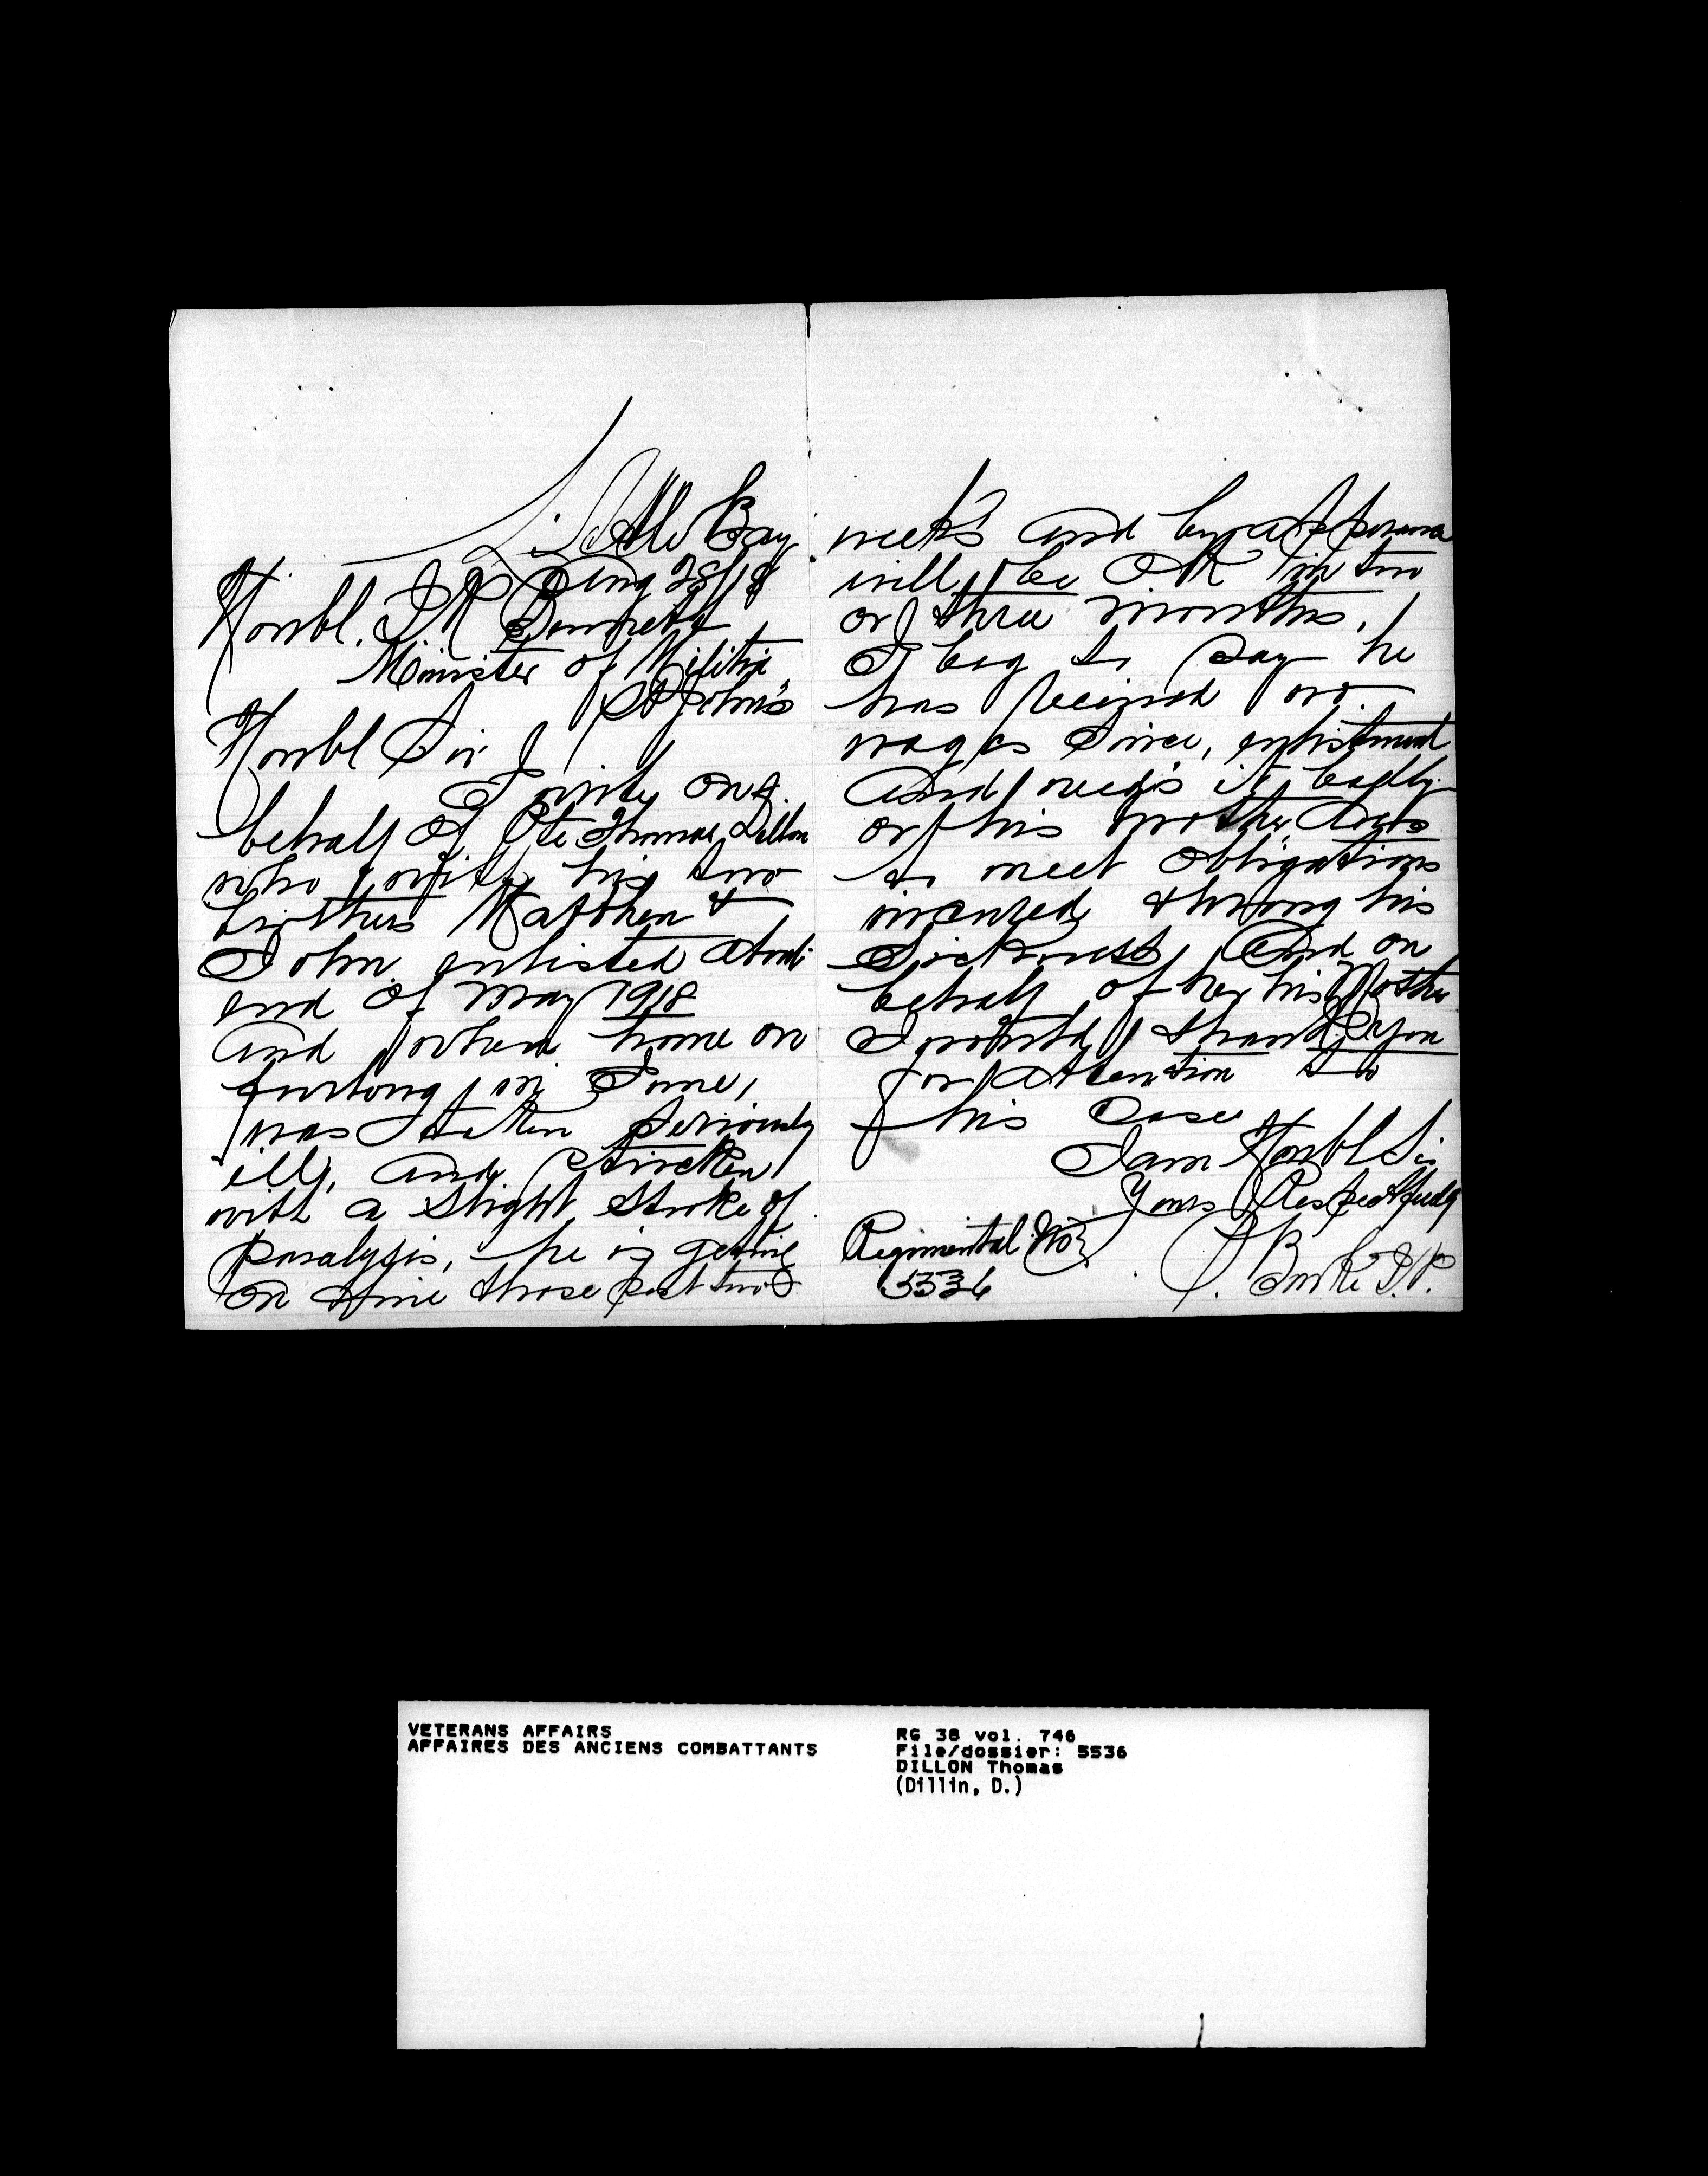 Little Bay
Aug 28/18
Honbl. J R Bennett
Minister of Militia
St John's
Honbl Sir
I write on
behalf of Pte Thomas Dillon
who with his two
brothers Matthew &
John enlisted about
end of May 1918
and when home on
furlong in June,
was taken seriously
ill, and stricken
with a slight stroke of
paralysis, he is getting
on fine those past two
weeks and by
will be OK in two
or three months.
I beg to say he
has received no
wages since, enlistment
and needs it badly
or his mother does
to meet obligations
incurred through his
sickness, and on
behalf of her his Mother
I would thank you
for attention to
his case
I am Honbl Sir
Yours Respectfully
Regimental No
5536
Burke J.P.
VETERANS AFFAIRS
AFFAIRES DES ANCIENS COMBATTANTS
RG 38 vol. 746
File/dossier: 5536
DILLON Thomas
(Dillin, D.)